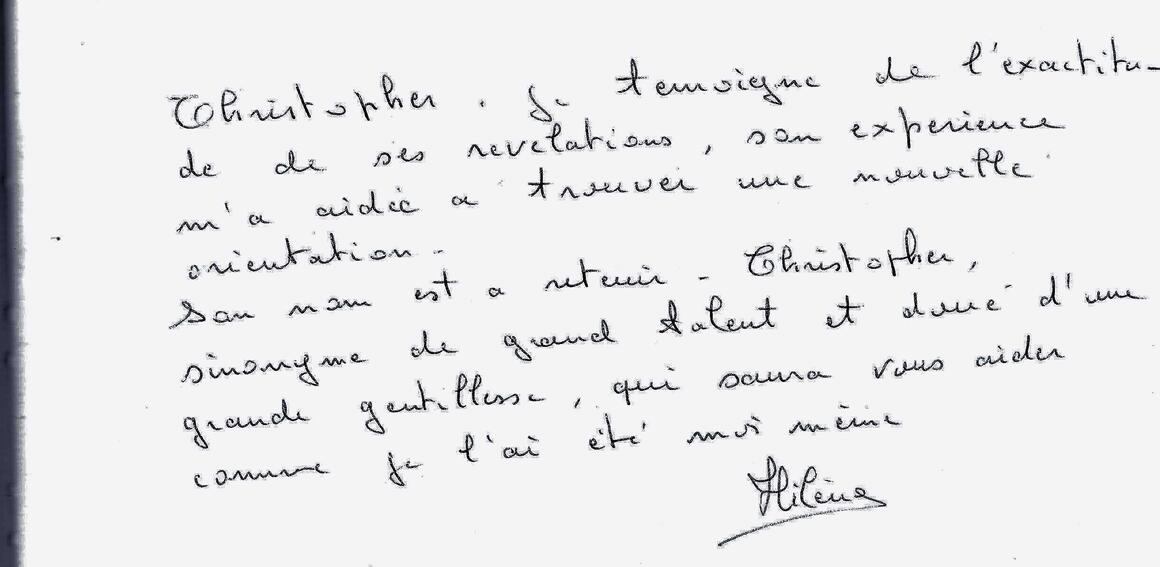 Christopher. je temoigne de l'exactitu-
de de ses revelations, son experience
m'a aidée a trouver une nouvelle
orientation -
Son nom est a retenir - Christopher,
sinonyme de grand talent et doué d'une
grande gentillesse, qui saura vous aider
comme je l'ai été moi même
Hilène